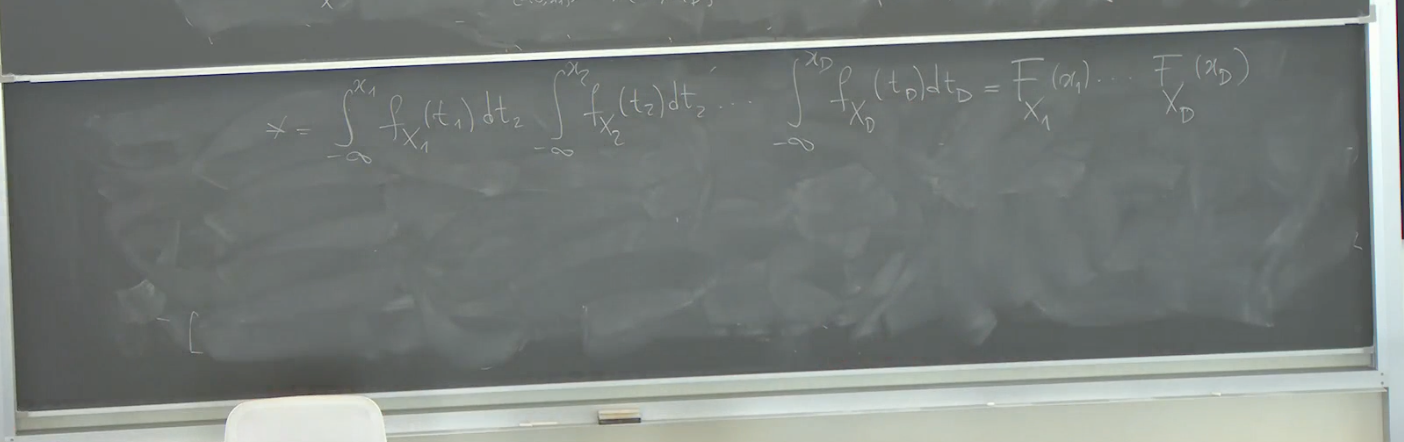 * = ∫_{-∞}^{x_1} f_{X_1}(t_1) dt_2 ∫_{-∞}^{x_2} f_{X_2}(t_2) dt_2 ... ∫_{-∞}^{x_D} f_{X_D}(t_D) dt_D = F_{X_1}(x_1) ... F_{X_D}(x_D)